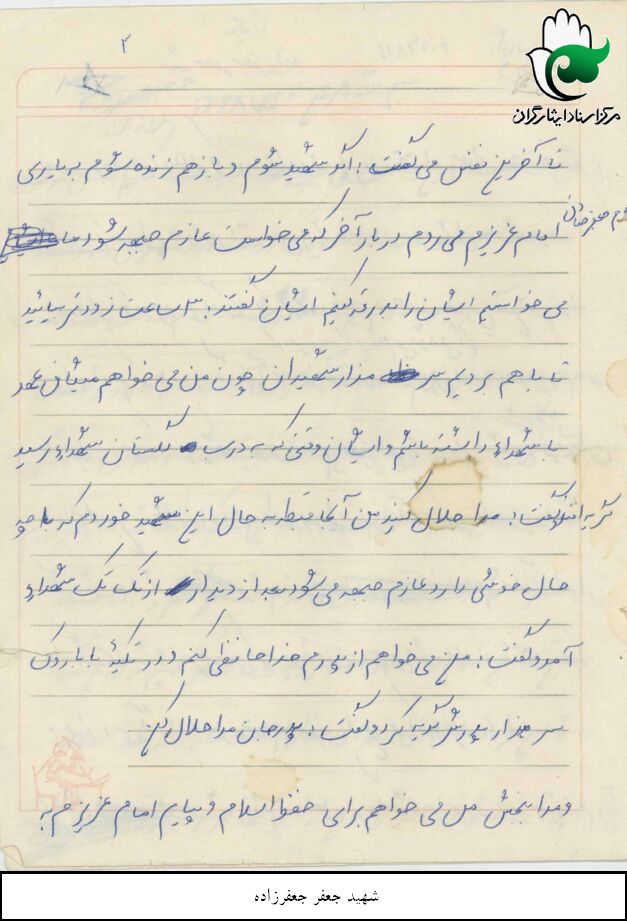 ۲
مرکز اسناد ایثارگران
تا آخرین نفس می گفت: اگر شهید شوم و باز هم زنده شوم به یاری
امام عزیزم می روم در بار آخر که می خواست عازم جبهه شود ما
می خواستیم ایشان را بدرقه کنیم ایشان گفتند: ۳ ساعت زودتر بیائید
تا باهم برویم سر مزار شهیدان چون من می خواهم میثاق عهد
با شهداء داشته باشم و ایشان وقتی که به درب گلستان شهداء رسید
گریه افتاد و گفت: مرا حلال کنید من آنجا غبطه به حال این شهید خوردم که با چه
حال خوشی دارد عازم جبهه می شود بعد از دیدار از تک تک شهداء
آمد و گفت: من می خواهم از پدرم خداحافظی کنم و در تکیه بابا رکن
سر مزار پدرش گریه کرد و گفت: پدر جان مرا حلال کن
و مرا ببخش من می خواهم برای حفظ اسلام و پیام امام عزیزم به
شهید جعفر جعفرزاده